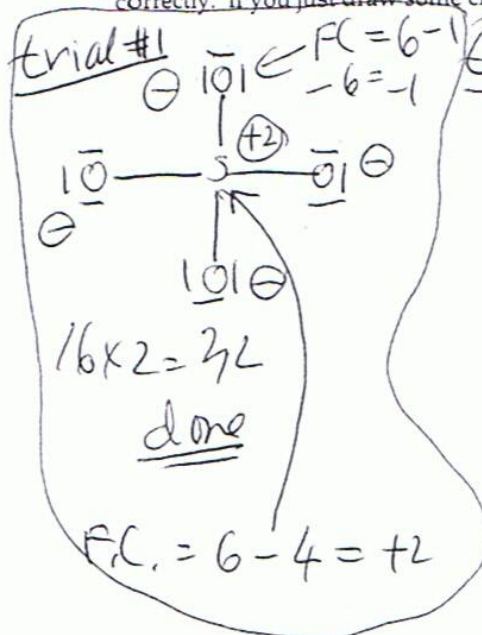 correctly. If you just draw some
trial #1
⊖ |O| ← FC = 6-1
-6 = -1
+2
|O — S — O| ⊖
⊖
|O| ⊖
16 x 2 = 32
done
F.C. = 6 - 4 = +2